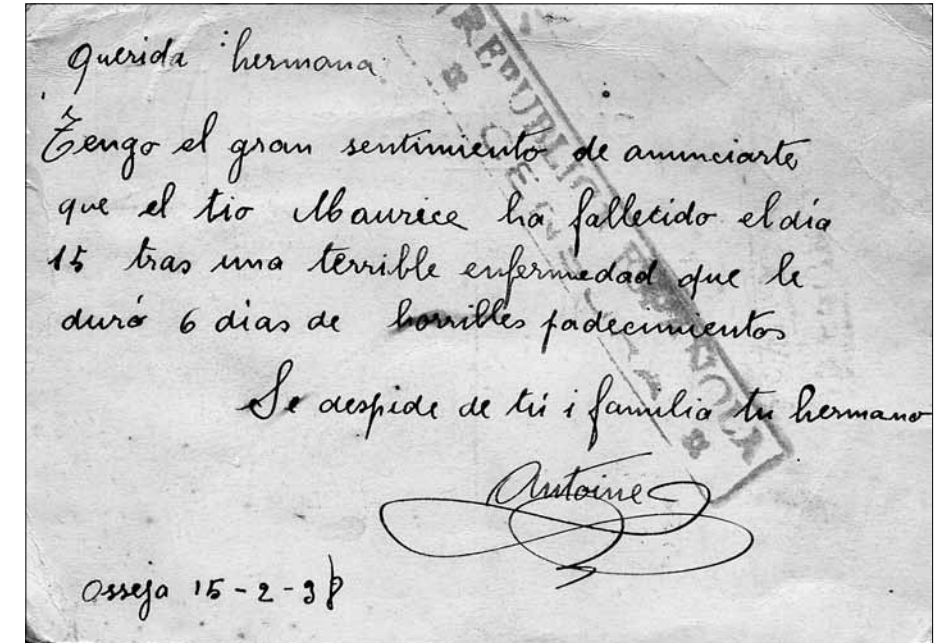 Querida hermana
Tengo el gran sentimiento de anunciarte
que el tio Maurice ha fallecido el día
15 tras una terrible enfermedad que le
duró 6 dias de horribles padecimientos
Se despide de tú i familia tu hermano
Antoine
Osseja 15-2-38
REPUBLICA ESPAÑOLA